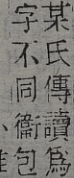 某氏傳讀爲
字不同衞包